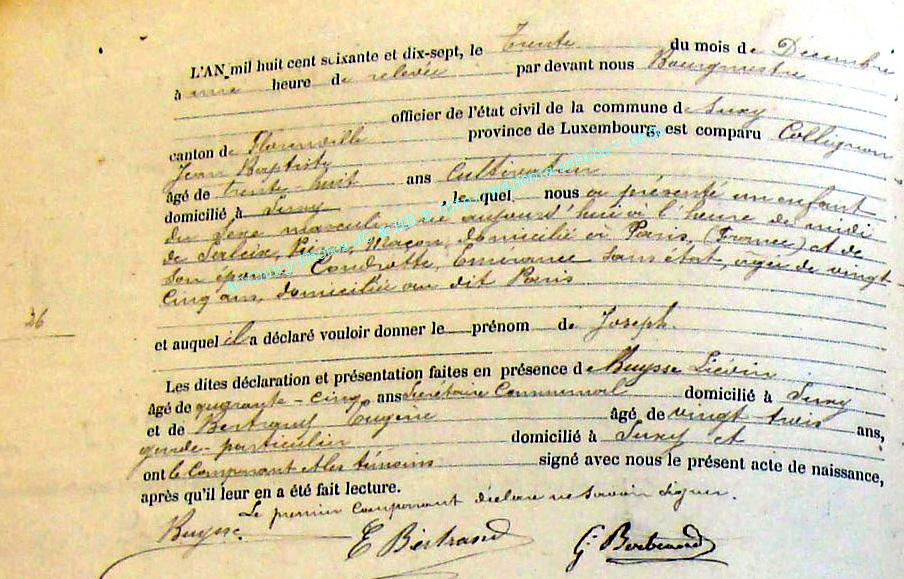 L'AN mil huit cent soixante et dix-sept, le Trente du mois de Décembre
à une heure de relevée par devant nous Bourgmestre
officier de l'état civil de la commune de Suxy
canton de Florenville province de Luxembourg, est comparu Collignon
Jean Baptiste
âgé de trente-huit ans Cultivateur
domicilié à Suxy lequel nous a présenté un enfant
du sexe masculin né aujourd'hui à l'heure de midi
de Maçon, domicilié à Paris, (France) et de
son épouse Condrotte, Emerance sans état, agée de vingt
cinq ans, domiciliée au dit Paris
26
et auquel il a déclaré vouloir donner le prénom de Joseph.
Les dites déclaration et présentation faites en présence de Buysse Liévin
âgé de quarante-cinq ans Secrétaire Communal domicilié à Suxy
et de Bertrand Eugène âgé de vingt trois ans,
garde-particulier domicilié à Suxy et
ont le Comparant et les témoins signé avec nous le présent acte de naissance,
après qu'il leur en a été fait lecture.
Le premier comparant déclare ne savoir signer.
Buysse E Bertrand G. Bertrand